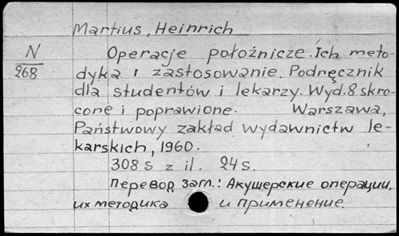 Martius, Heinrich
N
268
Operacje położnicze. Ich meto-
dyka i zastosowanie. Podręcznik
dla studentów i lekarzy. Wyd. 8 skró-
cone i poprawione. Warszawa,
Państwowy zakład wydawnictw le-
karskich, 1960.
308 s z il. 24 s.
Перевод загл.: Акушерские операции,
их методика и применение.